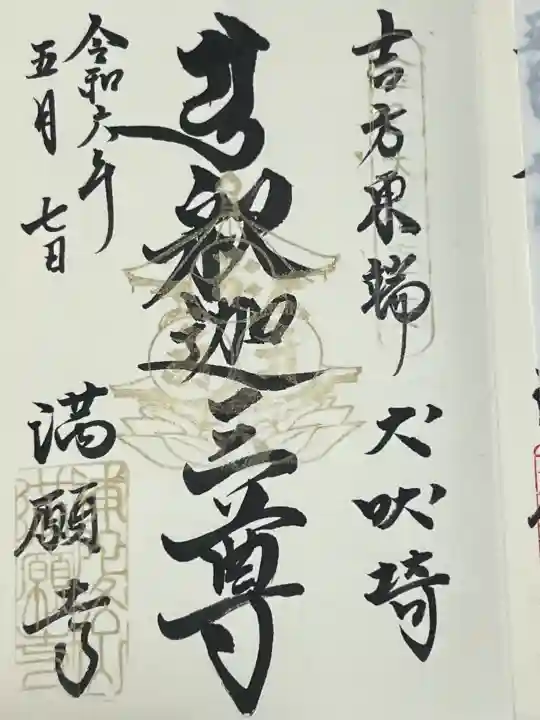 吉方東端 犬吠埼
奉 釈迦三尊
令和六年
五月七日
満願寺